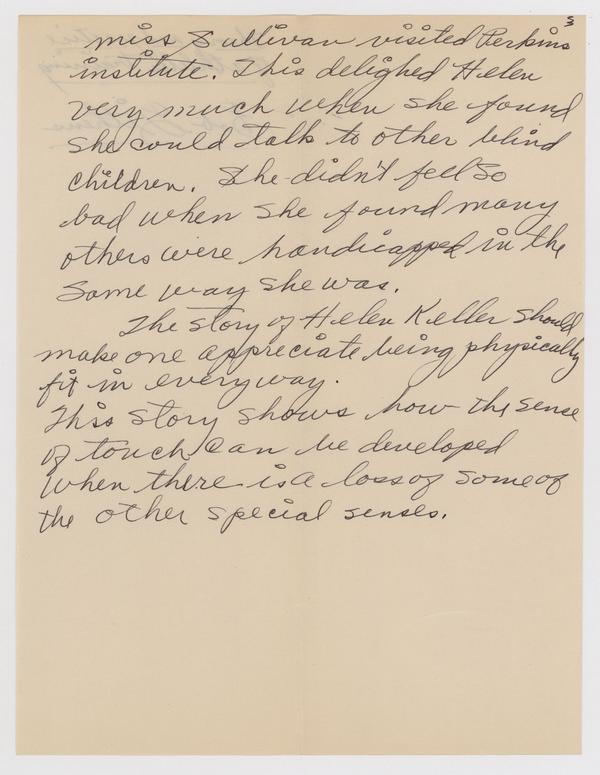 53
miss Sullivan visited Perkins
institute. This delighed Helen
very much when she found
she could talk to other blind
children. She didn't feel so
bad when she found many
others were handicapped in the
same way she was.
The story of Helen Keller should
make one appreciate being physically
fit in every way.
This story shows how the sense
of touch can be developed
when there is a loss of some of
the other special senses.